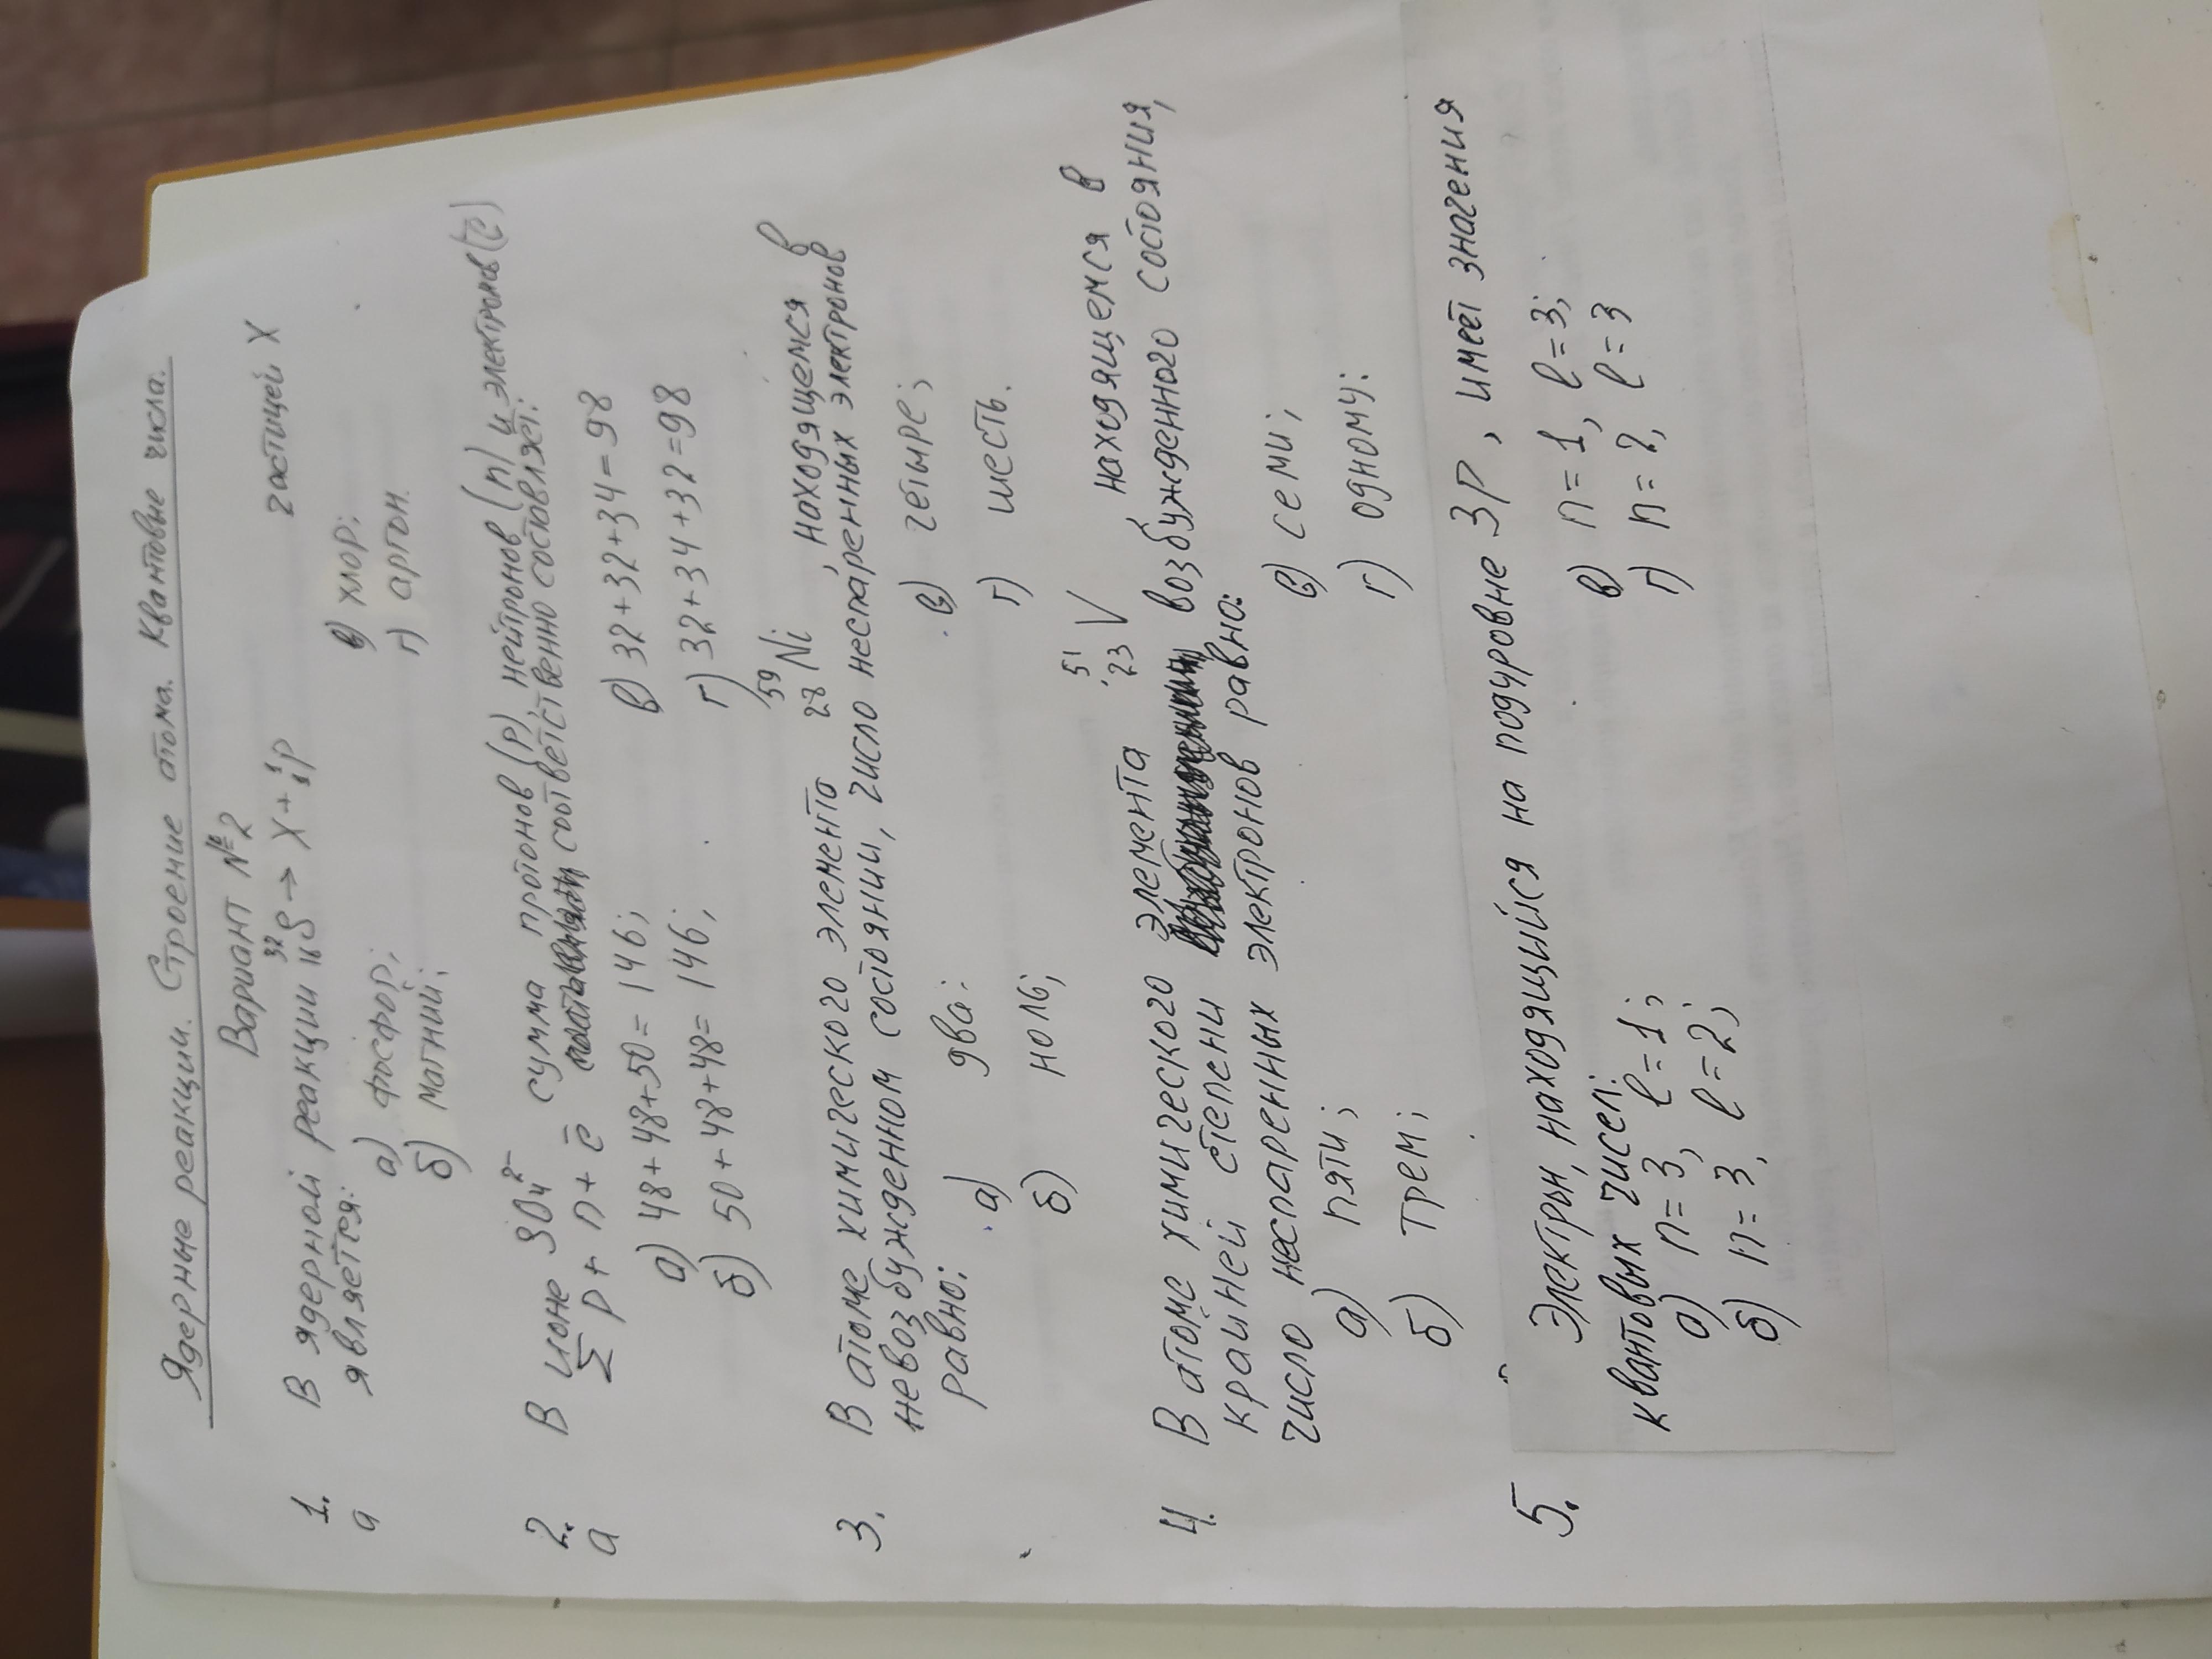 Ядерные реакции. Строение атома. Квантовые числа.
Вариант №2
1. В ядерной реакции ³²₁₆S → X + ¹₁p частицей X
а является:
а) фосфор; в) хлор;
б) магний; г) аргон.
2. В ионе SO₄²⁻ сумма протонов (p), нейтронов (n) и электронов (ē)
а ∑ p + n + ē соответственно составляет:
а) 48+48+50=146; в) 32+32+34=98
б) 50+48+48=146; г) 32+34+32=98
3. В атоме химического элемента ⁵⁹₂₈Ni, находящемся в
невозбужденном состоянии, число неспаренных электронов
равно:
а) два; в) четыре;
б) ноль; г) шесть.
4. В атоме химического элемента ⁵¹₂₃V находящемся в
крайней степени возбужденного состояния,
число неспаренных электронов равно:
а) пяти; в) семи;
б) трем; г) одному:
5. Электрон, находящийся на подуровне 3P, имеет значения
квантовых чисел:
а) n=3, l=1; в) n=1, l=3;
б) n=3, l=2; г) n=2, l=3